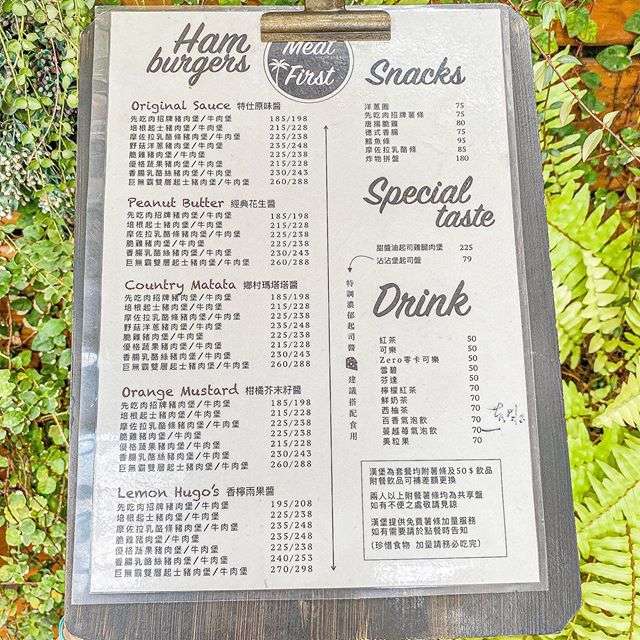 Ham
burgers
Meat
First
Original Sauce 特仕原味醬
先吃肉招牌豬肉堡/牛肉堡 185/198
培根起士豬肉堡/牛肉堡 215/228
摩佐拉乳酪條豬肉堡/牛肉堡 225/238
野菇洋蔥豬肉堡/牛肉堡 235/248
脆雞豬肉堡/牛肉堡 225/238
優格蔬果豬肉堡/牛肉堡 215/228
香腸乳酪絲豬肉堡/牛肉堡 230/243
巨無霸雙層起士豬肉堡/牛肉堡 260/288
Peanut Butter 經典花生醬
先吃肉招牌豬肉堡/牛肉堡 185/198
培根起士豬肉堡/牛肉堡 215/228
摩佐拉乳酪條豬肉堡/牛肉堡 225/238
脆雞豬肉堡/牛肉堡 225/238
香腸乳酪絲豬肉堡/牛肉堡 230/243
巨無霸雙層起士豬肉堡/牛肉堡 260/288
Country Matata 鄉村瑪塔塔醬
先吃肉招牌豬肉堡/牛肉堡 185/198
培根起士豬肉堡/牛肉堡 215/228
摩佐拉乳酪條豬肉堡/牛肉堡 225/238
野菇洋蔥豬肉堡/牛肉堡 235/248
脆雞豬肉堡/牛肉堡 225/238
優格蔬果豬肉堡/牛肉堡 215/228
香腸乳酪絲豬肉堡/牛肉堡 230/243
巨無霸雙層起士豬肉堡/牛肉堡 260/288
Orange Mustard 柑橘芥末籽醬
先吃肉招牌豬肉堡/牛肉堡 185/198
培根起士豬肉堡/牛肉堡 215/228
摩佐拉乳酪條豬肉堡/牛肉堡 225/238
脆雞豬肉堡/牛肉堡 225/238
優格蔬果豬肉堡/牛肉堡 215/228
香腸乳酪絲豬肉堡/牛肉堡 230/243
巨無霸雙層起士豬肉堡/牛肉堡 260/288
Lemon Hugo's 香檸雨果醬
先吃肉招牌豬肉堡/牛肉堡 195/208
培根起士豬肉堡/牛肉堡 225/238
摩佐拉乳酪條豬肉堡/牛肉堡 235/248
脆雞豬肉堡/牛肉堡 235/248
優格蔬果豬肉堡/牛肉堡 225/238
香腸乳酪絲豬肉堡/牛肉堡 240/253
巨無霸雙層起士豬肉堡/牛肉堡 270/298
特調濃郁起司醬 建議搭配食用
Snacks
洋蔥圈 75
先吃肉招牌薯條 75
唐揚脆雞 80
德式香腸 75
鱈魚條 95
摩佐拉乳酪條 85
炸物拼盤 180
Special
taste
甜醬油起司雞腿肉堡 225
沾沾堡起司盤 79
Drink
紅茶 50
可樂 50
Zero零卡可樂 50
雪碧 50
芬達 50
檸檬紅茶 70
鮮奶茶 70
西柚茶 70
百香氣泡飲 70
蔓越莓氣泡飲 70
美粒果 70
漢堡為套餐均附薯條及50$飲品
附餐飲品可補差額更換
兩人以上附餐薯條均為共享盤
如有不便之處敬請見諒
漢堡提供免費薯條加量服務
如有需要請於點餐時告知
(珍惜食物 加量請務必吃完)